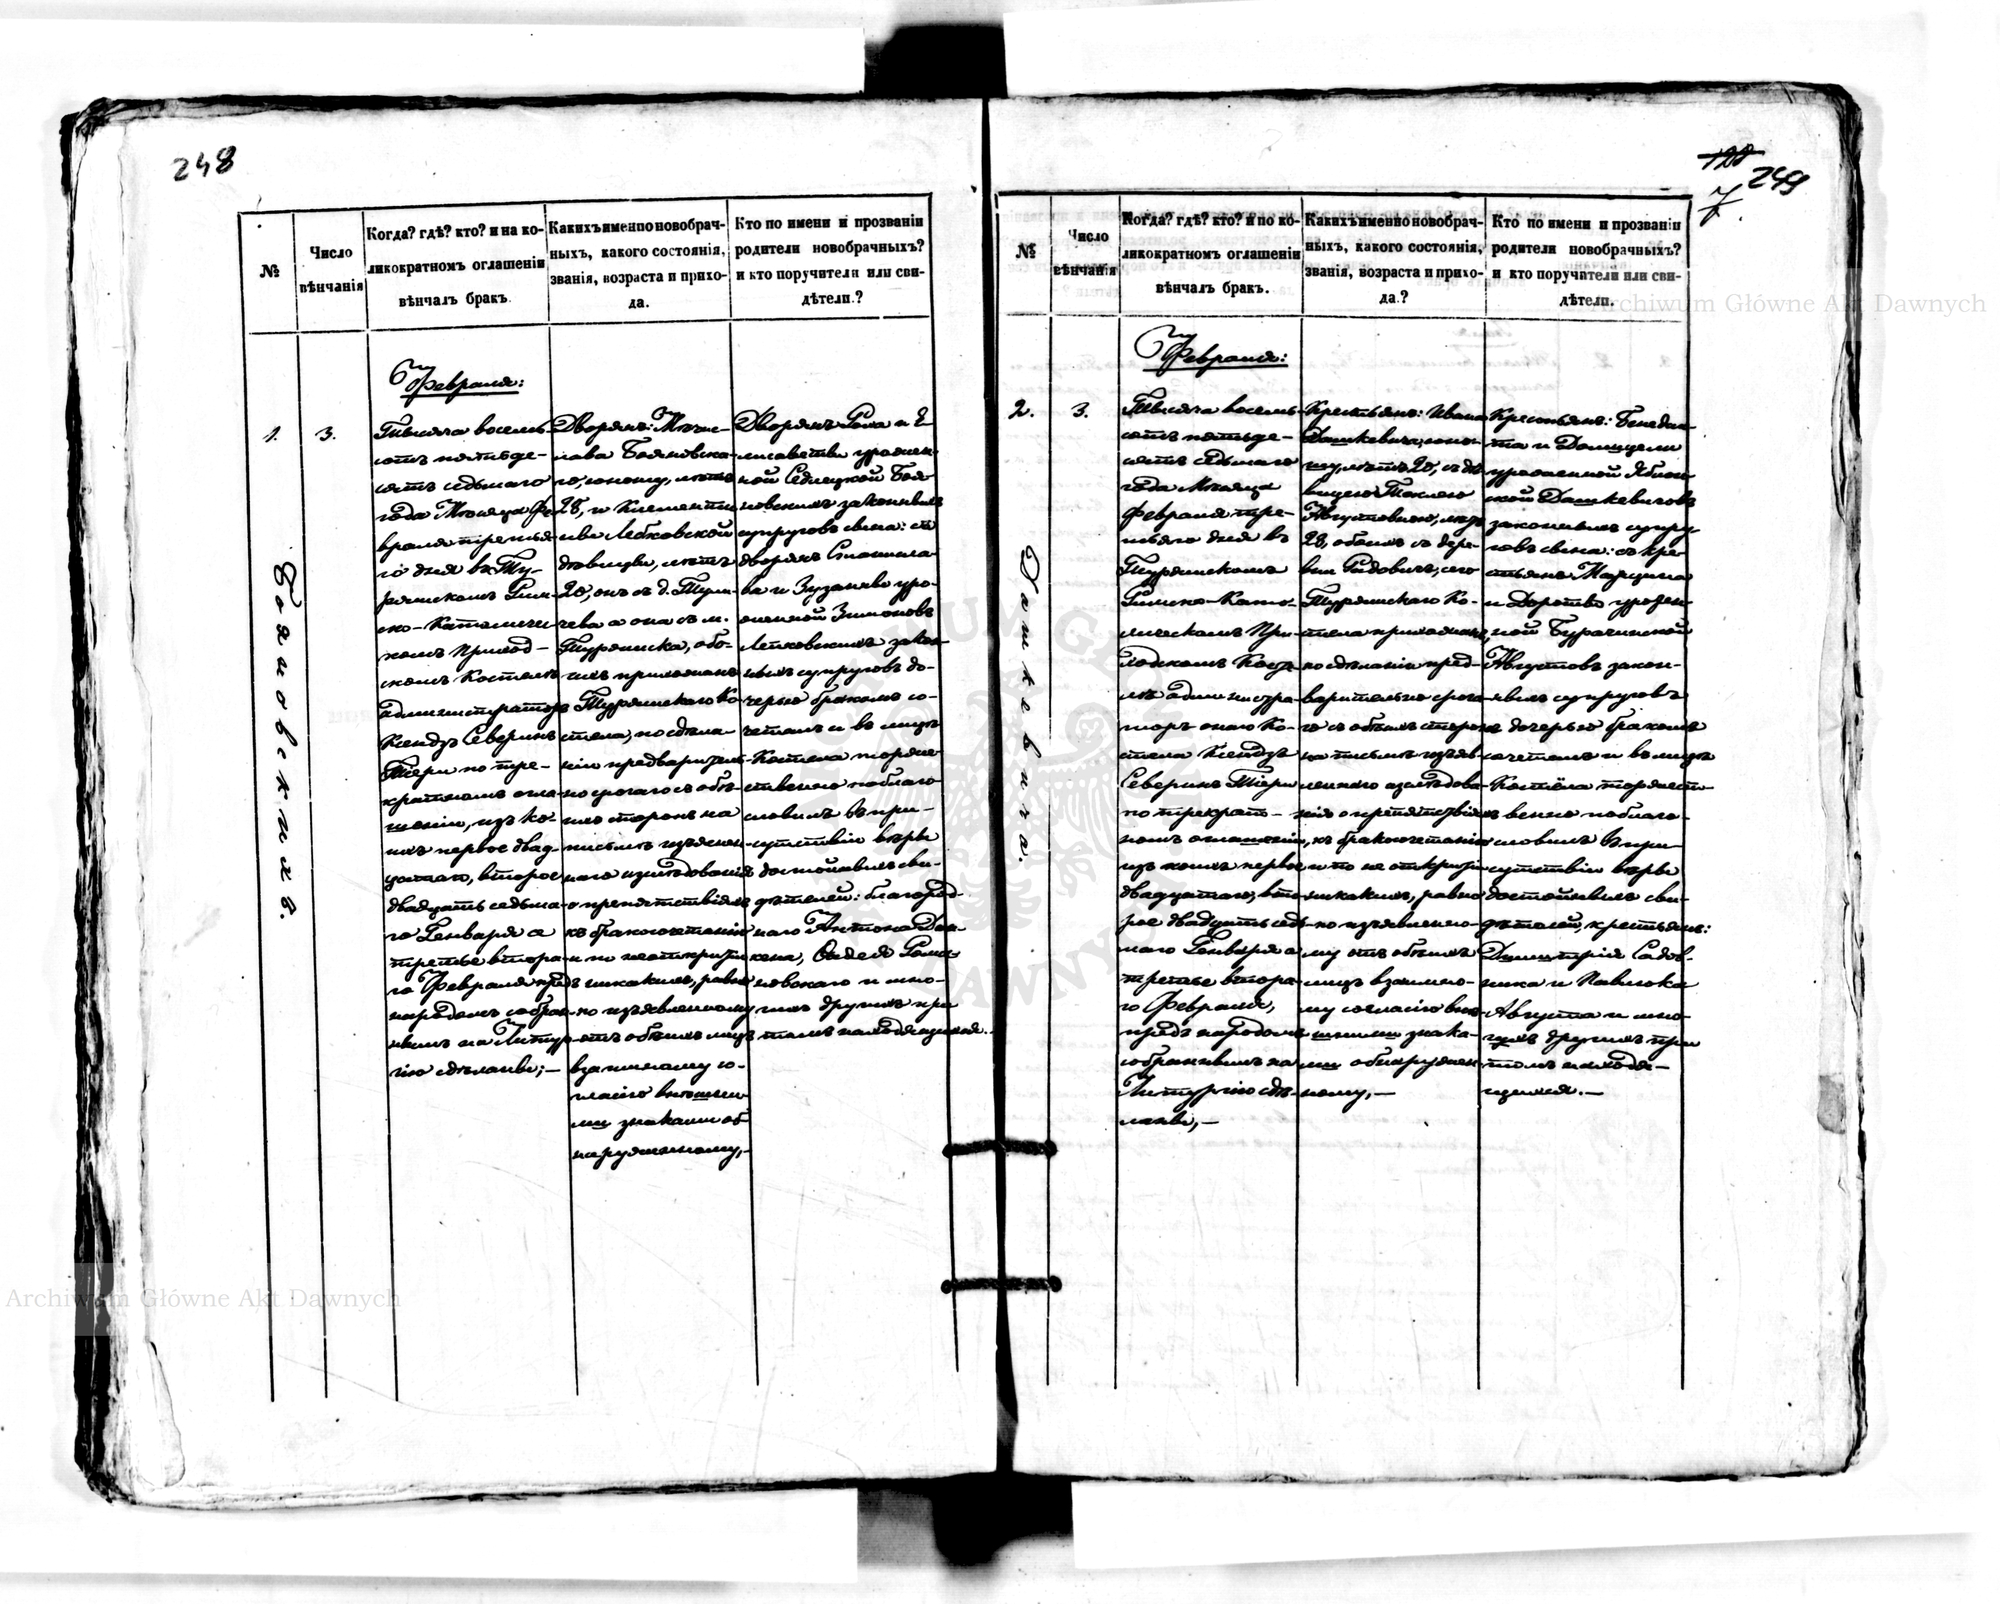 248
№
Число
вѣнчанія
Когда? гдѣ? кто? и на ко-
ликократномъ оглашеніи
вѣнчалъ бракъ.
Какихъ именно новобрач-
ныхъ, какого состоянія,
званія, возраста и прихо-
да.
Кто по имени и прозванію
родители новобрачныхъ?
и кто поручители или сви-
дѣтели.?
1.
3.
Бояновскихъ.
Февраля:
Тысяча восемь-
сотъ пятьде-
сятъ седьмаго
года Мѣсяца Фе-
враля третья-
го дня въ Ту-
рянскомъ Рим-
ско-Католичес-
комъ приход-
скомъ Костелѣ
администраторъ
Ксендзъ Северинъ
по тре-
кратномъ огла-
шеніи, изъ ко-
ихъ первое двад-
цатаго, второе
двадцать седьма-
го Генваря а
третье втора-
го Февраля предъ
народомъ собран-
нымъ на Литур-
гію сдѣланы;—
Дворянъ:
Бояновска-
го, юношу, лѣтъ
28, и Клементи-
ны Лебковской
дѣвицы, лѣтъ
20, онъ съ д.
а она съ м.
Турянска, обо-
ихъ прихожанъ
Турянскаго Ко-
стела, по сдѣла-
ніи предваритель-
но строгаго съ обѣ-
ихъ сторонъ на
письмѣ изъяснен-
наго изслѣдованія
о препятствіяхъ
къ бракосочетанію
и по неоткрытіи
никакихъ, равно
по изъявленному
отъ обѣихъ лицъ
взаимному со-
гласію внѣшни-
ми знаками об-
наруженному,-
Дворянъ Рока и Е-
лисаветы урожен-
ной Седлецкой Боя-
новскихъ законныхъ
супруговъ сына: съ
дворянъ Станисла-
ва и Зузанны уро-
жденной
закон-
ныхъ супруговъ до-
черью бракомъ со-
четалъ и въ лицѣ
Костела торже-
ственно поблаго-
словилъ въ при-
сутствіи вѣры
достойныхъ сви-
дѣтелей: благород-
наго Антона
и мно-
гихъ другихъ при
томъ находящихся.
128
249
№
Число
вѣнчанія
Когда? гдѣ? кто? и по ко-
ликократномъ оглашеніи
вѣнчалъ бракъ.
Какихъ именно новобрач-
ныхъ, какого состоянія,
званія, возраста и прихо-
да.?
Кто по имени и прозванію
родители новобрачныхъ?
и кто поручители или сви-
дѣтели.
2.
3.
Дашкевича.
Февраля:
Тысяча восемь-
сотъ пятьде-
сятъ седьмаго
года Мѣсяца
Февраля тре-
тьяго дня въ
Турянскомъ
Римско-Като-
лическомъ При-
ходскомъ Косте-
лѣ администра-
торъ онаго Ко-
стела Ксендзъ
Северинъ
по трекрат-
номъ оглашеніи,
изъ коихъ первое
двадцатаго, вто-
рое двадцать седь-
маго Генваря а
третье втора-
го Февраля,
предъ народомъ
собраннымъ на
Литургію сдѣ-
ланы,—
Крестьянъ: Ивана
Дашкевича, юно-
шу, лѣтъ 20, съ дѣ-
вицею Теклею
Августовною, лѣтъ
28, обоихъ съ дере-
вни Радовичъ, сего
Турянскаго Ко-
стела прихожанъ,
по сдѣланіи пред-
варительно строга-
го съ обѣихъ сторонъ
на письмѣ изъяв-
леннаго изслѣдова-
нія о препятствіяхъ
къ бракосочетанію
и по не открытіи
никакихъ, равно
по изъявленно-
му отъ обѣихъ
лицъ взаимно-
му согласію внѣ-
шними знака-
ми обнаружен-
ному,—
Крестьянъ: Бенедик-
та и Домицели
урожденной Яблон-
ской Дашкевичовъ
законныхъ супру-
говъ сына: съ кре-
стьянъ Марцина
и Доротѣи урожден-
ной Бурачинской
Августовъ закон-
ныхъ супруговъ
дочерью бракомъ
сочеталъ и въ лицѣ
Костёла торжест-
венно поблаго-
словилъ въ при-
сутствіи вѣры
достойныхъ сви-
дѣтелей, крестьянъ:
Димитрія Садов-
ника и Павлюка
Августа и мно-
гихъ другихъ при
томъ находя-
щихся.—
Archiwum Główne Akt Dawnych
Archiwum Główne Akt Dawnych